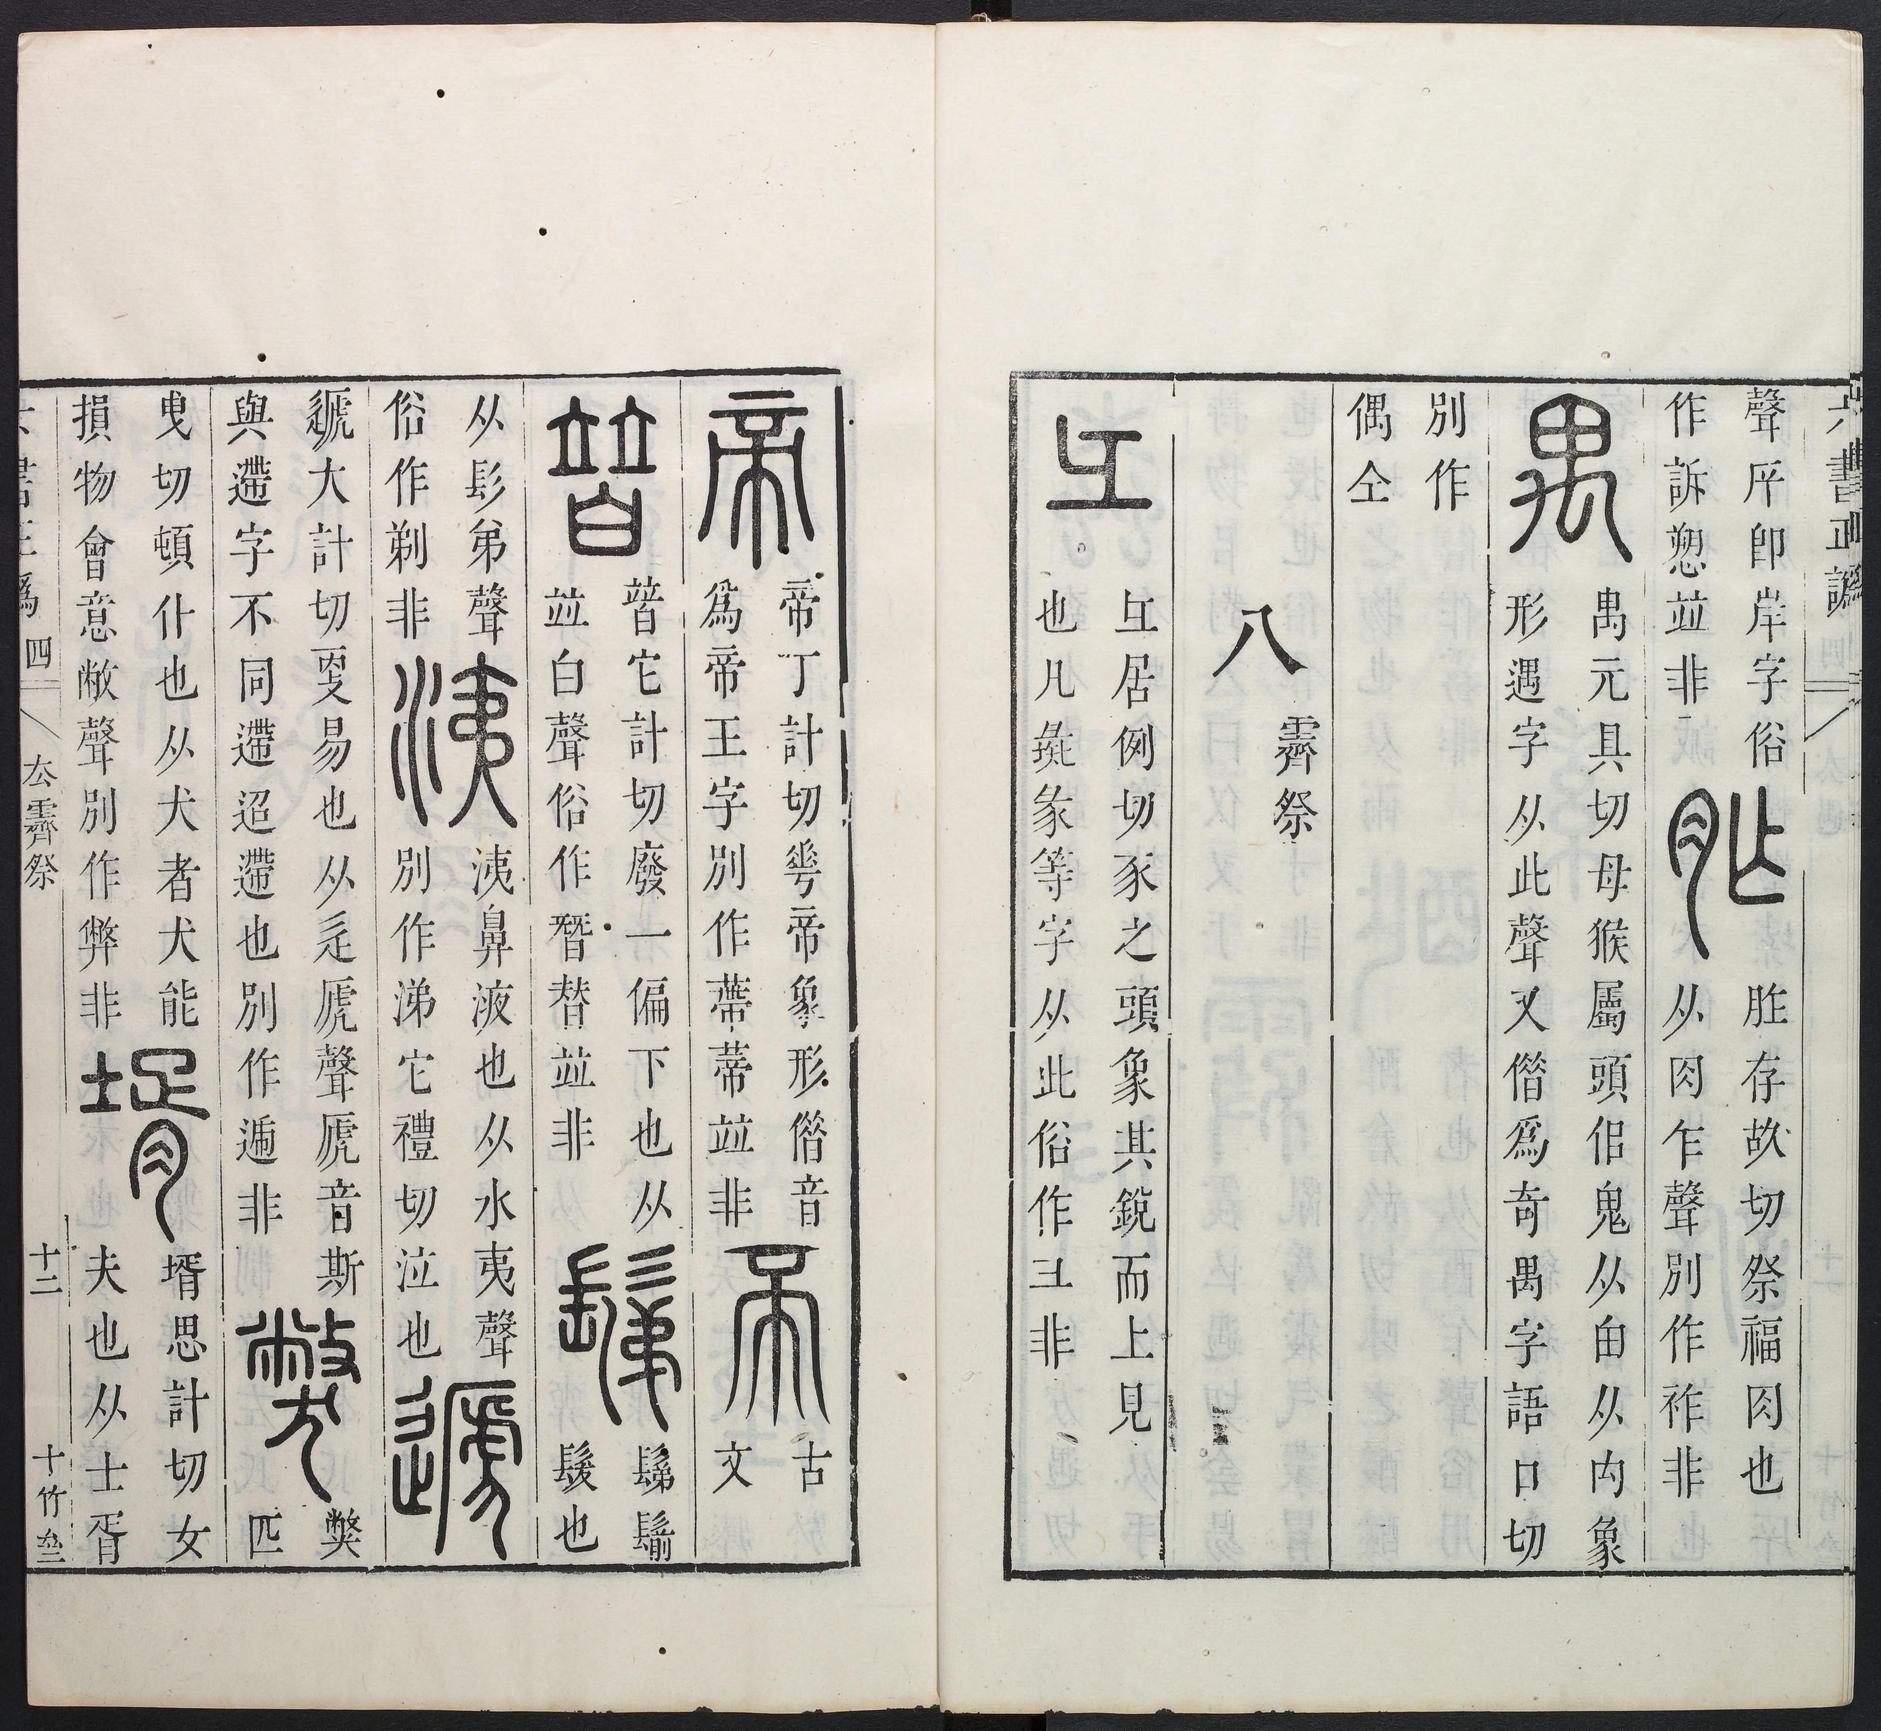 聲㡿卽岸字俗
作訴愬並非
胙存故切祭福肉也
从肉乍聲別作祚非
禺元具切母猴屬頭佀鬼从甶从禸象
形遇字从此聲又僭爲奇禺字語口切
別作
偶仝
八
霽祭
彑居例切豕之頭象其銳而上見
也凡彝彖等字从此俗作彐非
帝
帝丁計切華帝象形僭音
爲帝王字別作蔕蒂並非
古
文
暜它計切廢一偏下也从
並白聲俗作朁替並非
鬀鬄
髲也
从髟弟聲
俗作剃非
洟鼻液也从水夷聲
別作涕它禮切泣也
遞大計切更易也从辵虒聲虒音斯
與遰字不同遰迢遰也別作逓非
獘匹
曳切頓仆也从犬者犬能
損物會意敝聲別作弊非
壻思計切女
夫也从士胥
四
厺霽祭
十二
十竹